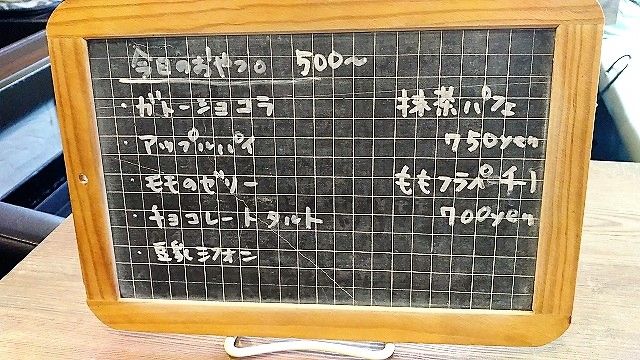 今日のおやつ。 500〜
・ガトーショコラ
・アップルパイ
・モモのゼリー
・チョコレートタルト
・豆乳シフォン
抹茶パフェ
750yen
ももフラペチーノ
700yen